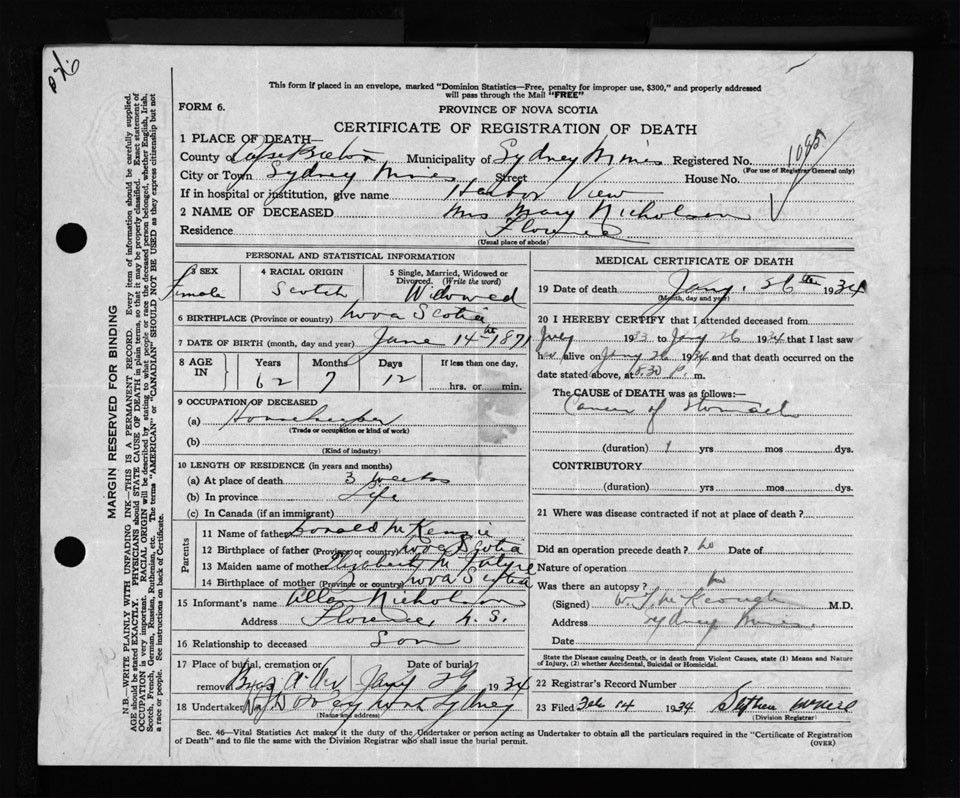 This form if placed in an envelope, marked "Dominion Statistics—Free, penalty for improper use, $300," and properly addressed
will pass through the Mail "FREE"
FORM 6.
PROVINCE OF NOVA SCOTIA
CERTIFICATE OF REGISTRATION OF DEATH
1 PLACE OF DEATH—
County of Cape Breton Municipality of Sydney Mines Registered No. 1085
(For use of Registrar General only)
City or Town Sydney Mines Street House No.
If in hospital or institution, give name Harbor View
2 NAME OF DECEASED Mrs Mary Nicholson
Residence Florence
(Usual place of abode)
PERSONAL AND STATISTICAL INFORMATION
3 SEX Female
4 RACIAL ORIGIN Scotch
5 Single, Married, Widowed or Divorced. (Write the word) Widowed
6 BIRTHPLACE (Province or country) Nova Scotia
7 DATE OF BIRTH (month, day and year) June 14th 1871
8 AGE IN Years 62 Months 7 Days 12 If less than one day, hrs. or min.
9 OCCUPATION OF DECEASED
(a) Housekeeper
(Trade or occupation or kind of work)
(b)
(Kind of industry)
10 LENGTH OF RESIDENCE (in years and months)
(a) At place of death 3 weeks
(b) In province Life
(c) In Canada (if an immigrant)
Parents
11 Name of father Donald McKenzie
12 Birthplace of father (Province or country) Nova Scotia
13 Maiden name of mother Elizabeth McIntyre
14 Birthplace of mother (Province or country) Nova Scotia
15 Informant's name Allan Nicholson
Address Florence N. S.
16 Relationship to deceased Son
17 Place of burial, cremation or removal Date of burial Jany 29 1934
18 Undertaker North Sydney
(Name and address)
MEDICAL CERTIFICATE OF DEATH
19 Date of death Jany. 26th 1934
(Month, day and year)
20 I HEREBY CERTIFY that I attended deceased from
July 1933 to Jany 26 1934 that I last saw
her alive on Jany 26 1934 and that death occurred on
date stated above, at 8.30 P. m.
The CAUSE of DEATH was as follows:—
Cancer of Stomach
(duration) 1 yrs mos dys.
CONTRIBUTORY
(duration) yrs mos dys.
21 Where was disease contracted if not at place of death?
Did an operation precede death? no Date of
Nature of operation
Was there an autopsy? no
(Signed) McKeough M.D.
Address Sydney Mines.
Date
State the Disease causing Death, or in death from Violent Causes, state (1) Means and Nature
of Injury, (2) whether Accidental, Suicidal or Homicidal.
22 Registrar's Record Number
23 Filed Feb 14 1934 Stephen
(Division Registrar)
Sec. 46—Vital Statistics Act makes it the duty of the Undertaker or person acting as Undertaker to obtain all the particulars required in the "Certificate of Registration
of Death" and to file the same with the Division Registrar who shall issue the burial permit. (OVER)
MARGIN RESERVED FOR BINDING
N.B.—WRITE PLAINLY WITH UNFADING INK—THIS IS A PERMANENT RECORD. Every item of information should be carefully supplied.
AGE should be stated EXACTLY. PHYSICIANS should STATE CAUSE OF DEATH in plain terms, so that it may be properly classified. Exact statement of
OCCUPATION is very important. RACIAL ORIGIN will be described by stating to what people or race the deceased person belonged, whether English, Irish,
Scotch, French, German, Russian, Ruthenian, etc. The terms "AMERICAN" or "CANADIAN" SHOULD NOT BE USED as they express citizenship but not
a race or people. See instructions on back of Certificate.